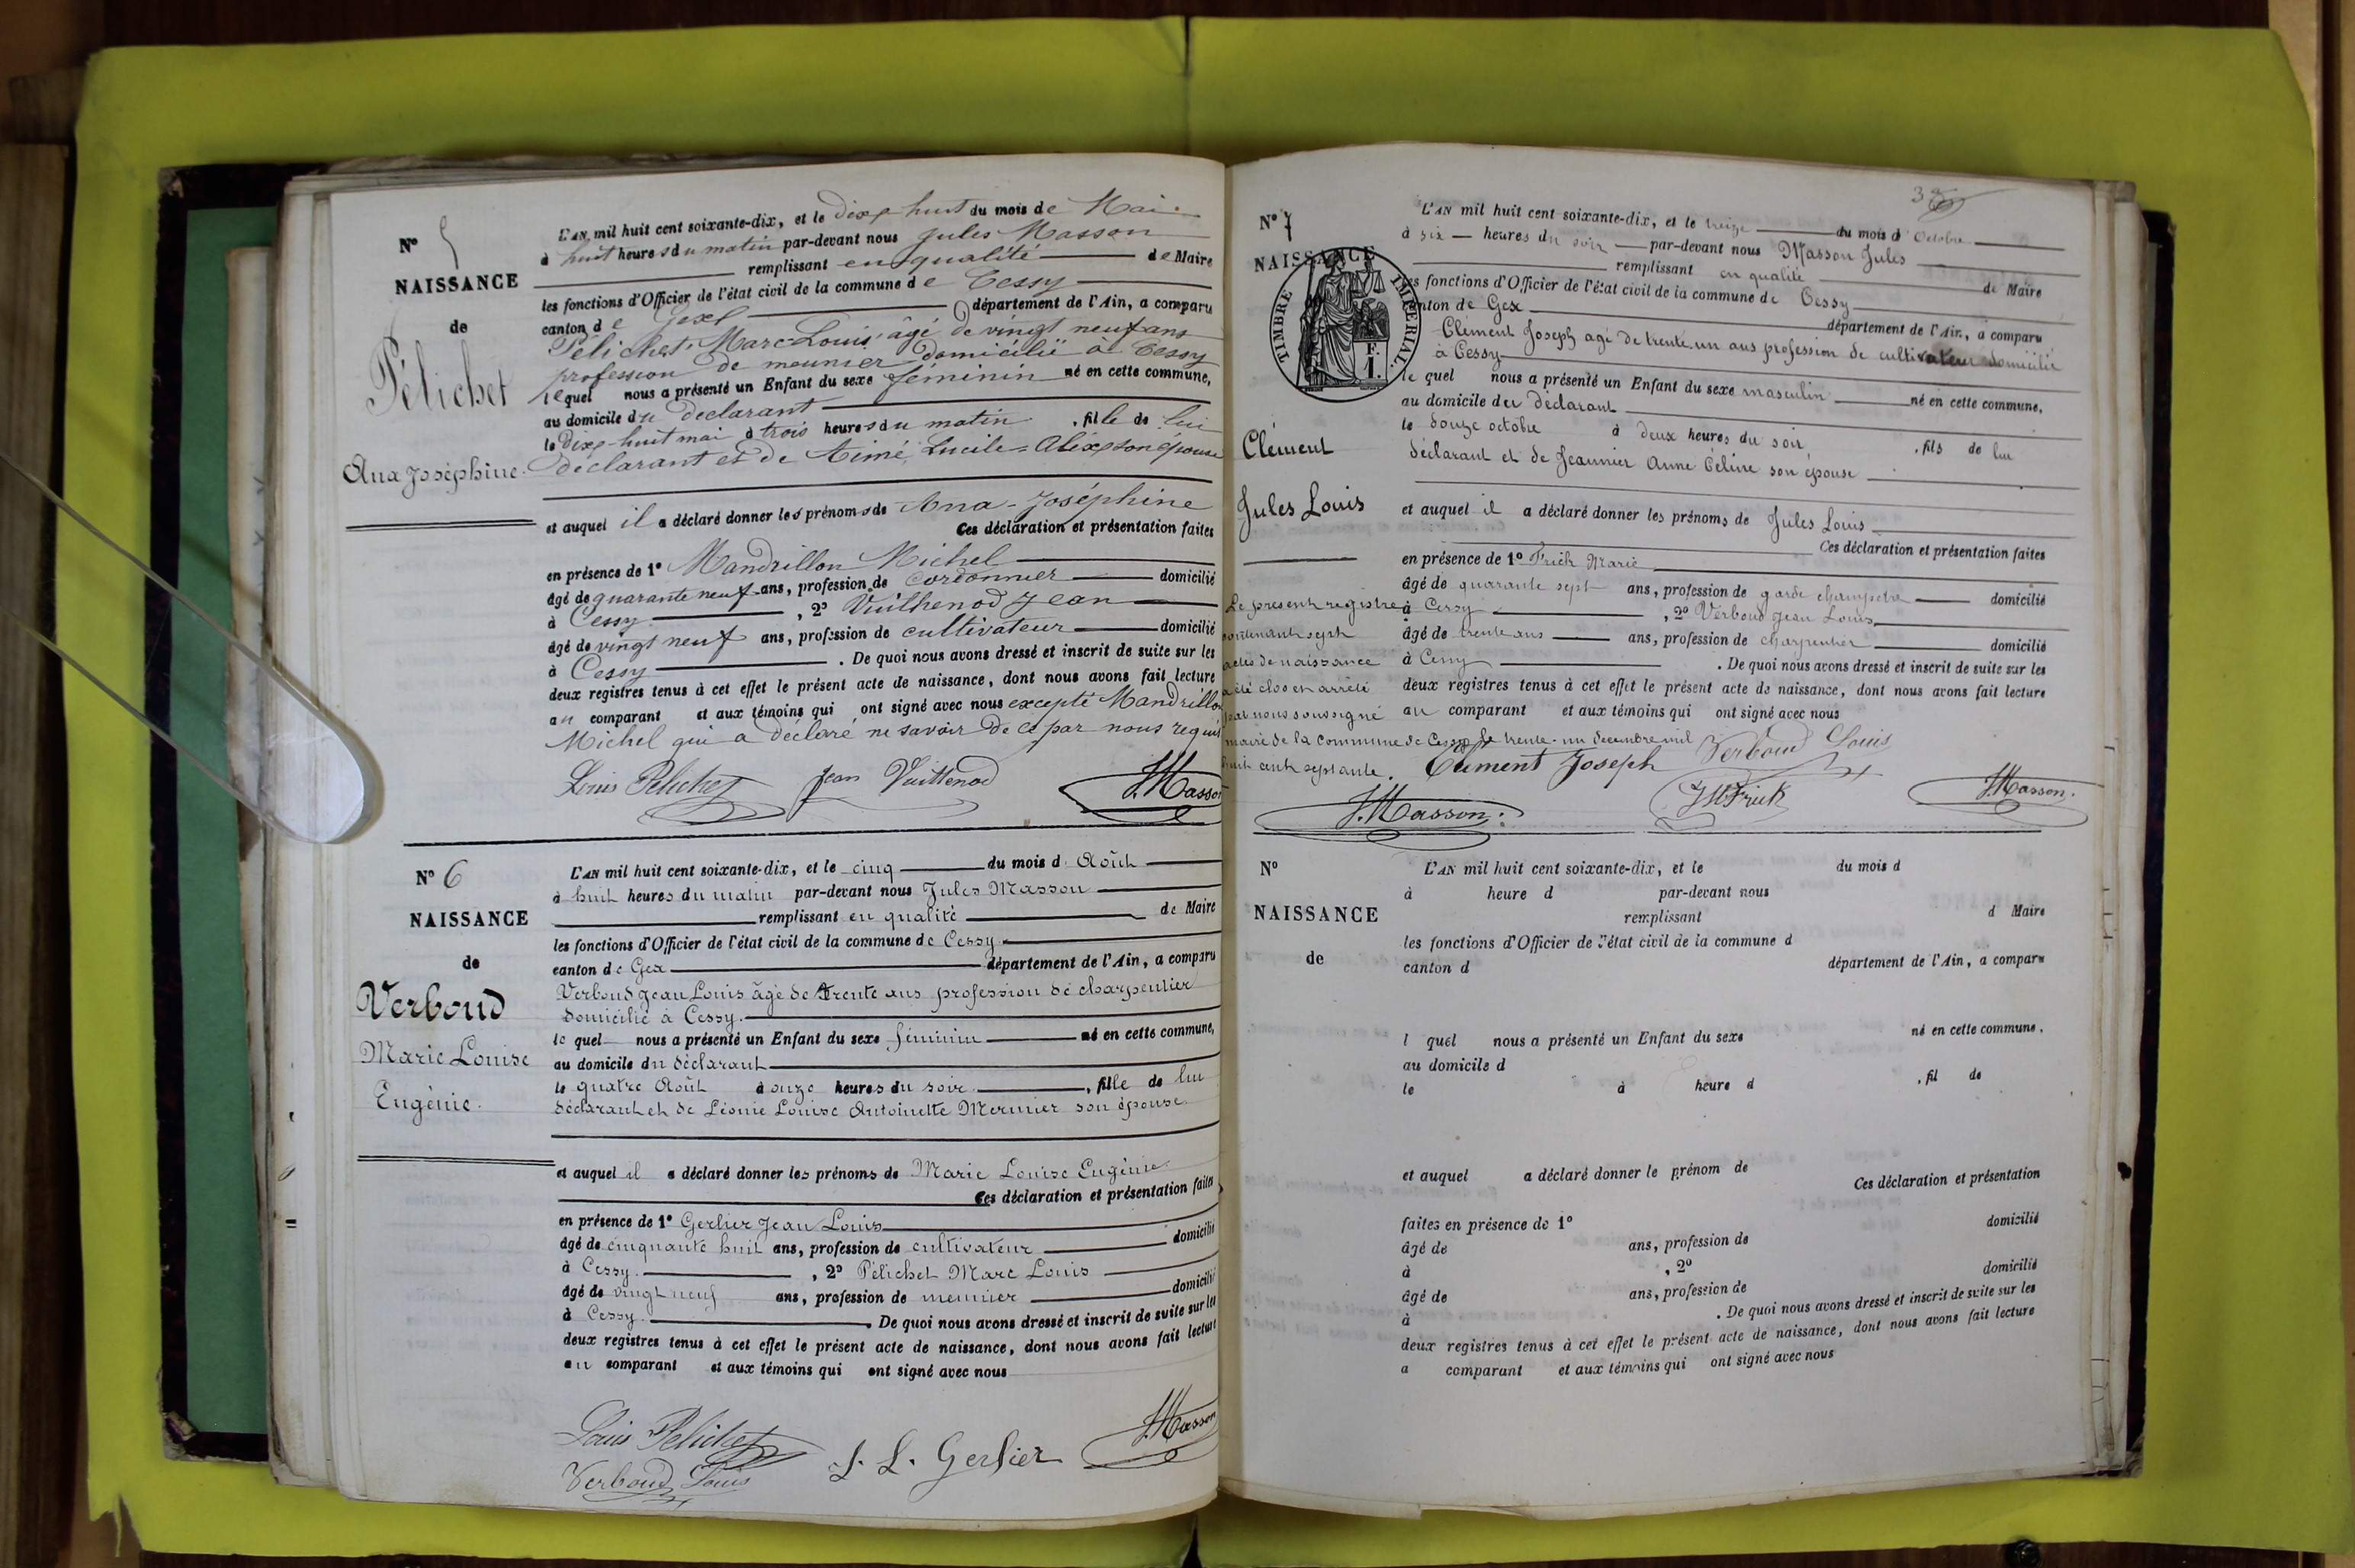 N° 5
NAISSANCE
de
Pélichet
Ana Joséphine.
L'AN mil huit cent soixante-dix, et le dixe huit du mois de Mai
à huit heures du matin par-devant nous Jules Masson
remplissant en qualité de Maire
les fonctions d'Officier de l'état civil de la commune de Cessy
canton de Gex département de l'Ain, a comparu
Pélichet Marc Louis âgé de vingt neuf ans
profession de meunier domicilié à Cessy
lequel nous a présenté un Enfant du sexe féminin né en cette commune,
au domicile du declarant
le dixe-huit mai à trois heures du matin, fille de lui
déclarant et de Aimé, Lucile=Alixe son épouse
et auquel il a déclaré donner les prénoms de Ana-Joséphine
Ces déclaration et présentation faites
en présence de 1° Mandrillon Michel
âgé de quarante neuf ans, profession de cordonnier domicilié
à Cessy, 2° Vuithenod Jean
âgé de vingt neuf ans, profession de cultivateur domicilié
à Cessy. De quoi nous avons dressé et inscrit de suite sur les
deux registres tenus à cet effet le présent acte de naissance, dont nous avons fait lecture
au comparant et aux témoins qui ont signé avec nous excepté Mandrillon
Michel qui a déclaré ne savoir de ce par nous requis
Louis Pelichet Jean Vuittenod J. Masson
N° 6
NAISSANCE
de
Verboud
Marie Louise
Eugénie.
L'AN mil huit cent soixante-dix, et le cinq du mois d Août
à huit heures du matin par-devant nous Jules Masson
remplissant en qualité de Maire
les fonctions d'Officier de l'état civil de la commune de Cessy
canton de Gex département de l'Ain, a comparu
Verboud Jean Louis âgé de trente ans profession de charpentier
domicilié à Cessy.
le quel nous a présenté un Enfant du sexe féminin né en cette commune,
au domicile du déclarant
le quatre Août à onze heures du soir, fille de lui
déclarant et de Léonie Louise Antoinette Mermier son épouse.
et auquel il a déclaré donner les prénoms de Marie Louise Eugénie
Ces déclaration et présentation faites
en présence de 1° Gerlier Jean Louis
âgé de cinquante huit ans, profession de cultivateur domicilié
à Cessy, 2° Pélichet Marc Louis
âgé de vingt neuf ans, profession de meunier domicilié
à Cessy. De quoi nous avons dressé et inscrit de suite sur les
deux registres tenus à cet effet le présent acte de naissance, dont nous avons fait lecture
au comparant et aux témoins qui ont signé avec nous
Louis Pelichet J. Masson
Verboud Louis J. L. Gerlier
N° 7
NAISSANCE
TIMBRE IMPÉRIAL.
F.
1.
Clément
Jules Louis
L'AN mil huit cent soixante-dix, et le treize du mois d Octobre
à six heures du soir par-devant nous Masson Jules
remplissant en qualité de Maire
les fonctions d'Officier de l'état civil de la commune de Cessy
canton de Gex département de l'Ain, a comparu
Clément Joseph agé de trente-un ans profession de cultivateur domicilié
à Cessy
le quel nous a présenté un Enfant du sexe masculin né en cette commune.
au domicile du déclarant
le douze octobre à deux heures du soir, fils de lui
déclarant et de Jeannier Anne Céline son épouse
et auquel il a déclaré donner les prénoms de Jules Louis
Ces déclaration et présentation faites
en présence de 1° Frick Marie
âgé de quarante sept ans, profession de garde champetre domicilié
à Cessy, 2° Verboud Jean Louis
âgé de trente ans ans, profession de charpentier domicilié
à Cessy. De quoi nous avons dressé et inscrit de suite sur les
deux registres tenus à cet effet le présent acte de naissance, dont nous avons fait lecture
au comparant et aux témoins qui ont signé avec nous
Le présent registre
contenant sept
actes de naissance
a été clos et arrêté
par nous soussigné
maire de la commune de Cessy le trente-un decembre mil
huit cent septante.
Clément Joseph Verboud Louis
J. Masson. Frick J. Masson.
N°
NAISSANCE
de
L'AN mil huit cent soixante-dix, et le du mois d
à heure d par-devant nous
remplissant d Maire
les fonctions d'Officier de l'état civil de la commune d
canton d département de l'Ain, a comparu
l quel nous a présenté un Enfant du sexe né en cette commune.
au domicile d
le à heure d, fil de
et auquel a déclaré donner le prénom de
Ces déclaration et présentation
faites en présence de 1° domicilié
âgé de ans, profession de
à, 2° domicilié
âgé de ans, profession de
à. De quoi nous avons dressé et inscrit de suite sur les
deux registres tenus à cet effet le présent acte de naissance, dont nous avons fait lecture
a comparant et aux témoins qui ont signé avec nous